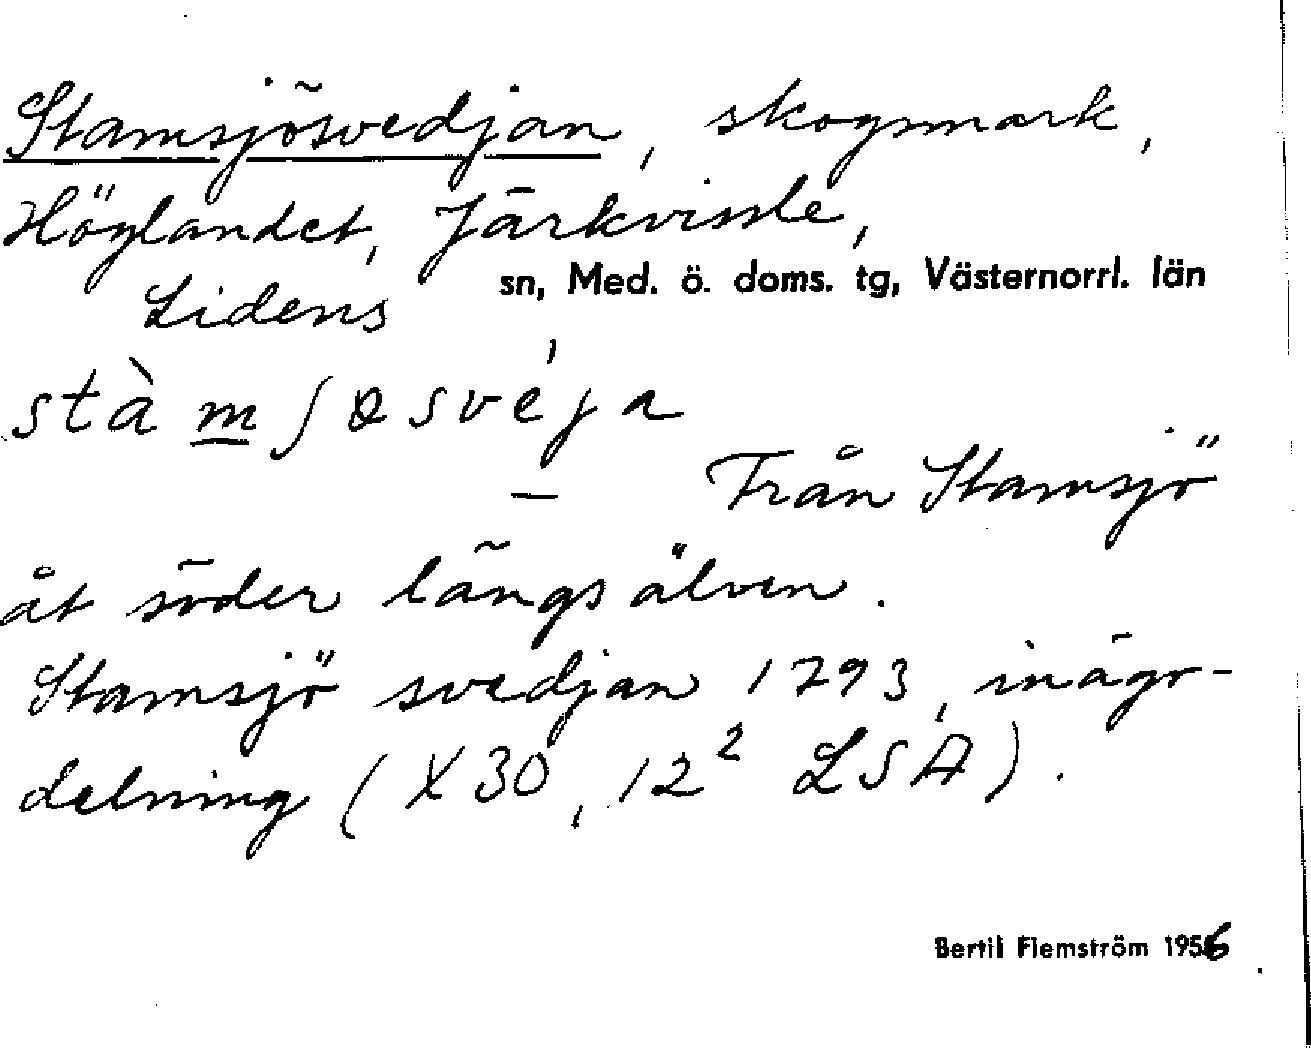 Stamsjösvedjan, skogsmark,
Höglandet, Järkvissle,
Lidens sn, Med. ö. doms. tg, Västernorrl. län
stàmʃøsvéja
— Från Stamsjö
åt söder längs älven.
Stamsjö svedjan 1793, inägo-
delning (X30, 12² LSA).
Bertil Flemström 1956